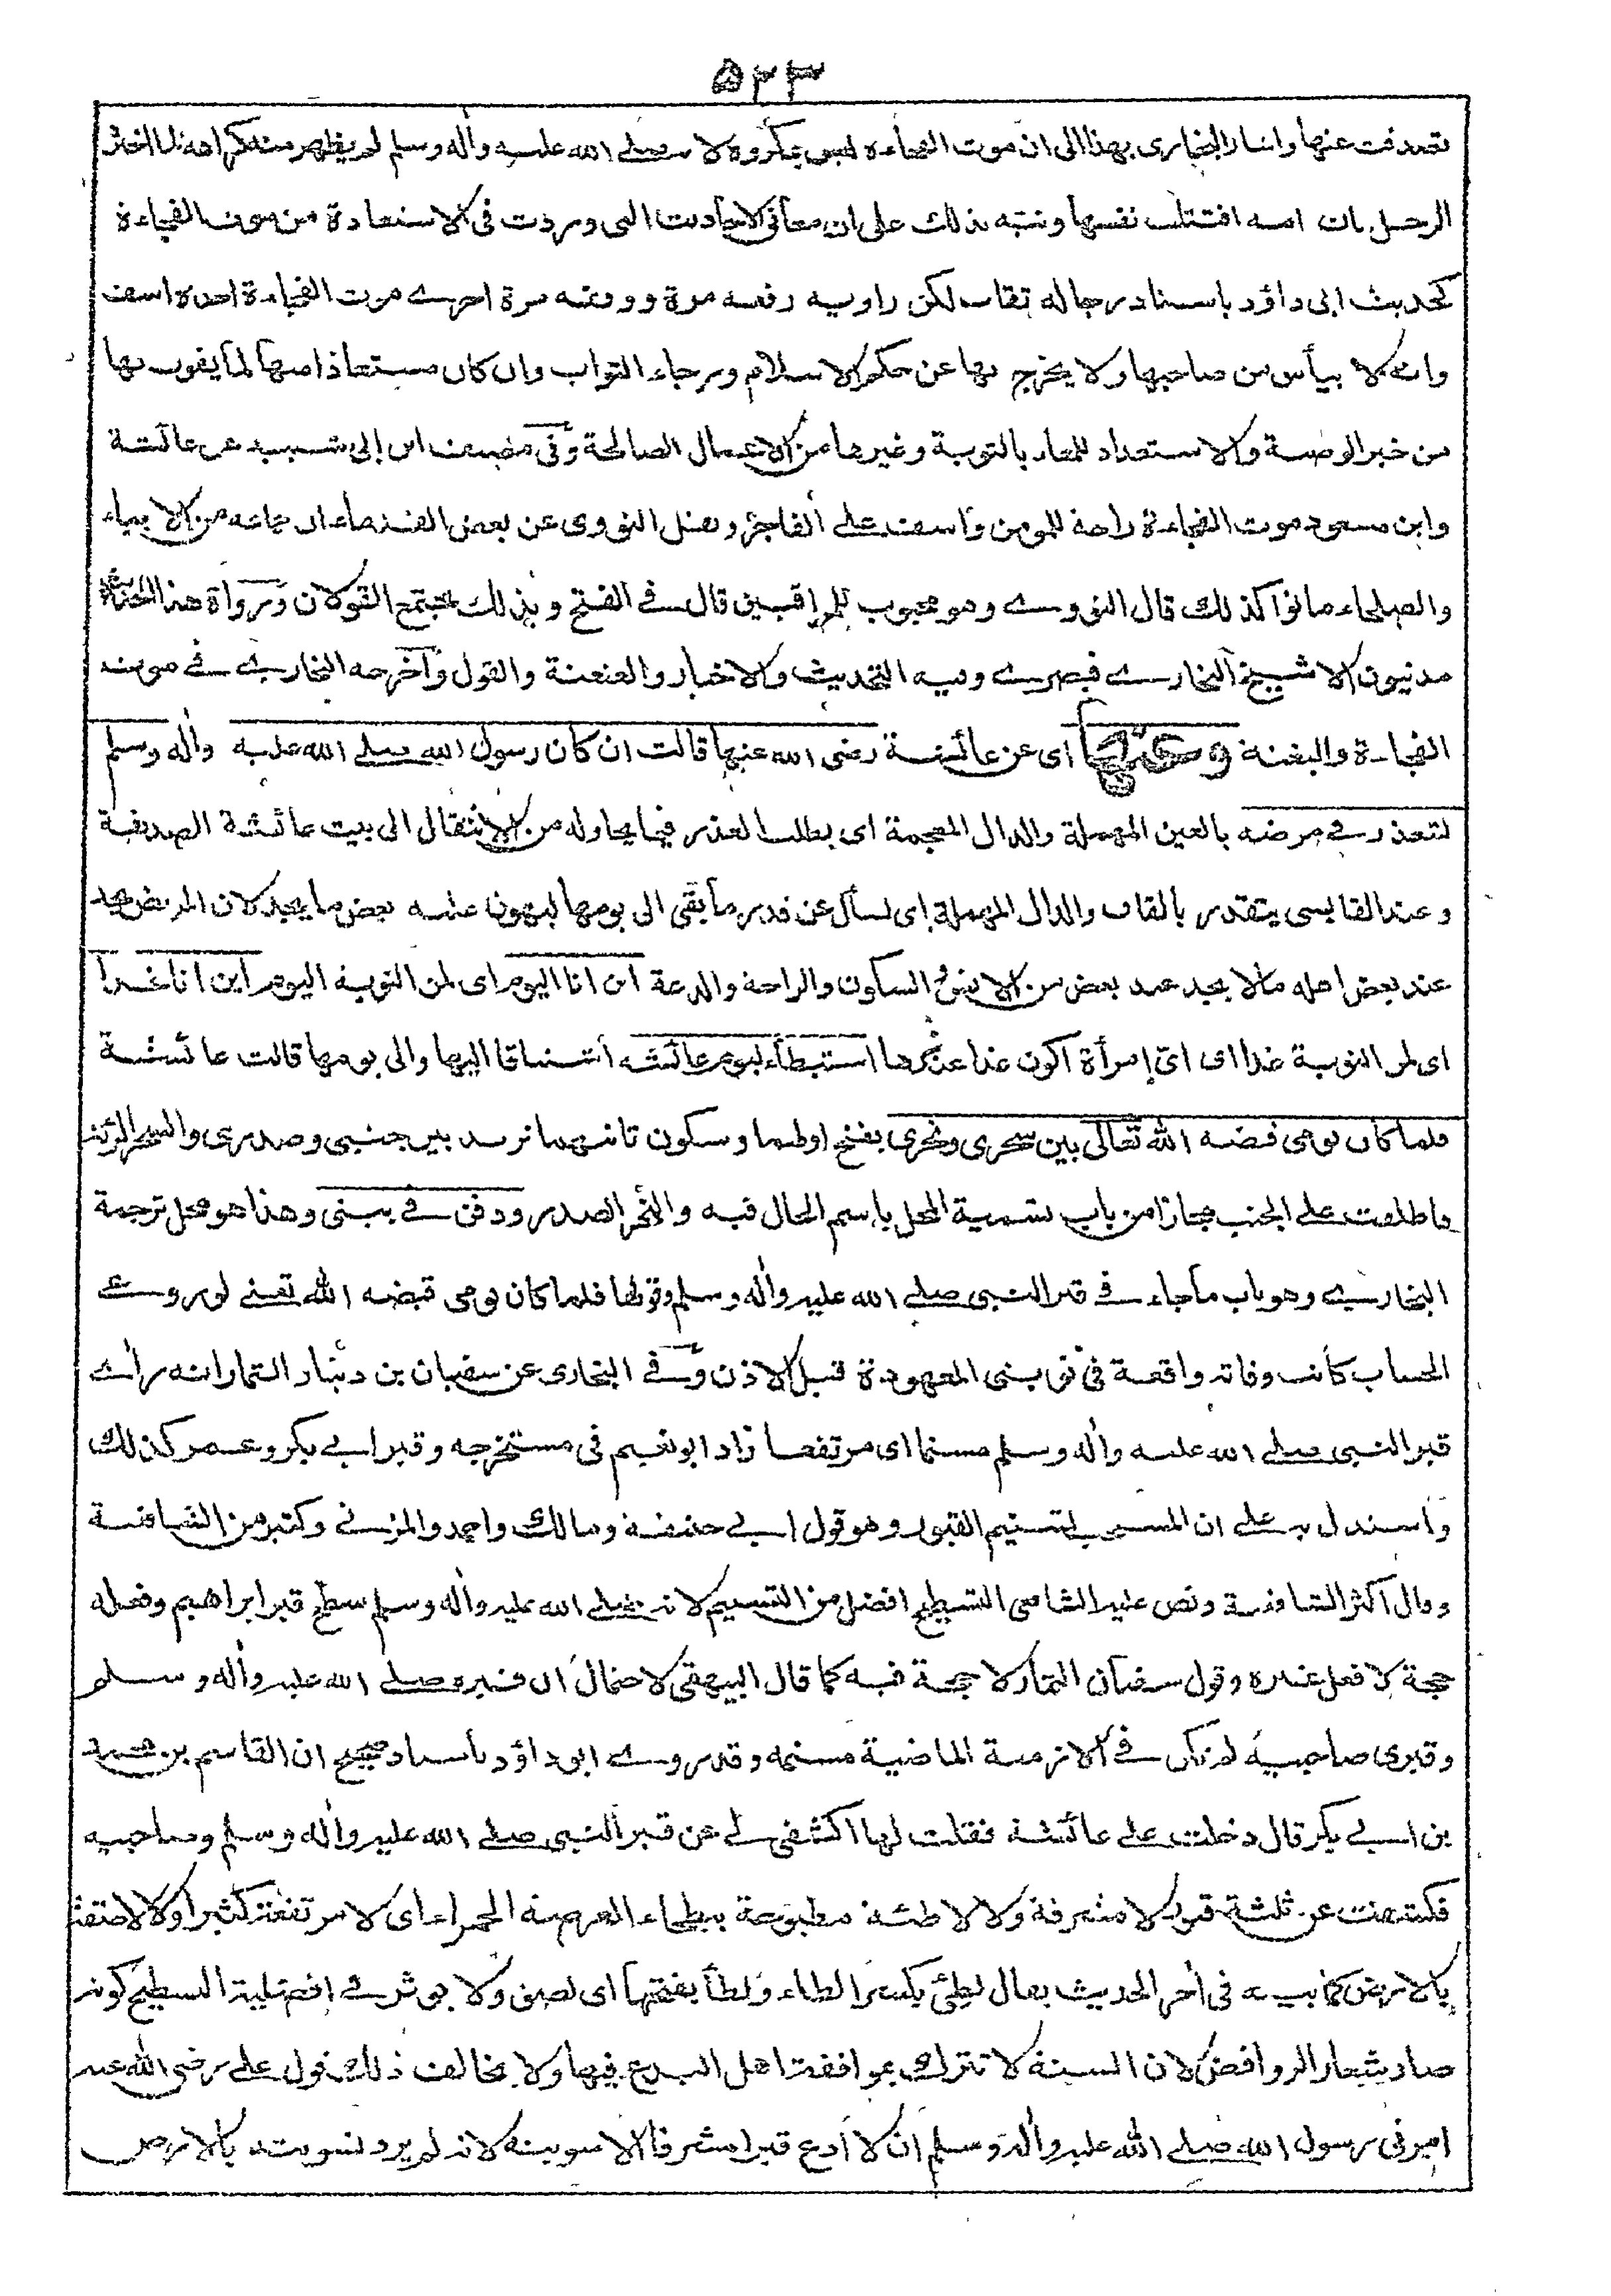 ۵۳۳
تصدقت عنها واشار البخارى بهذا الى ان موت الفجاءة ليس بمكروه لانه صلے الله عليه واٰله وسلم لم يظهر منه كراهة لما اخبره
الرجل بان امه افتلتت نفسها ونبّه بذلك على ان معانى الاحاديث التى وردت فى الاستعاذة من موت الفجاءة
كحديث ابى داؤد باسناد رجاله ثقات لكن راويه رفعه مرة ووقفه مرة اخرے موت الفجاءة اخذة اسف
وانه لا ييأس من صاحبها ولا يخرج بها عن حكم الاسلام ورجاء الثواب وان كان مستعاذا منها لما يفوت بها
من خير الوصية والاستعداد للمعاد بالتوبة وغيرها من الاعمال الصالحة وفى مصنف ابن ابى شيبة عن عائشة
وابن مسعود موت الفجاءة راحة للمومن واسف على الفاجر ونقل النووى عن بعض القدماء ان جماعة من الانبياء
والصلحاء ماتوا كذلك قال النووے وهو محبوب للمراقبين قال فے الفتح وبذلك يجتمع القولان ورواة هذا الحديث
مدنيون الا شيخ البخارے فبصرے وفيه التحديث والاخبار والعنعنة والقول واخرجه البخارے فے موت
الفجاءة والبغتة وعنها اى عن عائشة رضى الله عنها قالت ان كان رسول الله صلے الله عليه واٰله وسلم
ليتعذر فے مرضه بالعين المهملة والذال المعجمة اى يطلب العذر فيما يحاوله من الانتقال الى بيت عائشة الصديقة
وعند القابسى يتقدر بالقاف والدال المهملة اى يسأل عن قدر ما بقى الى يومها ليهون عليه بعض ما يجد لان المريض يجد
عند بعض اهله ما لا يجد عند بعض من الانس والسكون والراحة والدعة اين انا اليوم اى لمن النوبة اليوم اين انا غدا
اى لمن النوبة غدا اى اىّ امرأة اكون غدا عندها استبطاء ليوم عائشة اشتياقا اليها والى يومها قالت عائشة
فلما كان يومى قبضه الله تعالى بين سحرى ونحرى بفتح اولهما وسكون ثانيهما تريد بين جنبى وصدرى والسحر الرئة
فاطلقت على الجنب مجازا من باب تسمية المحل باسم الحال فيه والنحر الصدر ودفن فے بيتى وهذا هو محل ترجمة
البخارے وهو باب ما جاء فے قبر النبى صلے الله عليه واٰله وسلم وقولها فلما كان يومى قبضه الله تعنے لو روعے
الحساب كانت وفاته واقعة فى نوبتى المعهودة قبل الاذن وفے البخارى عن سفيان بن دينار التمار انه رأے
قبر النبى صلے الله عليه واٰله وسلم مسنما اى مرتفعا زاد ابو نعيم فى مستخرجه وقبر ابے بكر وعمر كذلك
واستدل به على ان المستحب تسنيم القبور وهو قول ابے حنيفة ومالك واحمد والمزنے وكثير من الشافعية
وقال اكثر الشافعية ونص عليه الشافعى التسطيح افضل من التسنيم لانه صلے الله عليه واٰله وسلم سطح قبر ابراهيم وفعله
حجة لا فعل غيره وقول سفيان التمار لا حجة فيه كما قال البيهقى لاحتمال ان قبره صلے الله عليه واٰله وسلم
وقبرى صاحبيه لم تكن فے الازمنة الماضية مسنمة وقد روے ابو داؤد باسناد صحيح ان القاسم بن محمد
بن ابے بكر قال دخلت على عائشة فقلت لها اكشفى لے عن قبر النبى صلے الله عليه واٰله وسلم وصاحبيه
فكشفت عن ثلثة قبور لا مشرفة ولا لاطئة مبطوحة ببطحاء العرصة الحمراء اى لا مرتفعة كثيرا ولا لاصقة
بالارض كما بينه فى اٰخر الحديث يقال لطئ بكسر الطاء ولطأ بفتحها اى لصق ولا يوثر فے افضلية التسطيح كونه
صار شعار الروافض لان السنة لا تترك بموافقة اهل البدع فيها ولا يخالف ذلك قول على رضى الله عنه
امرنى رسول الله صلے الله عليه واٰله وسلم ان لا ادع قبرا مشرفا الا سويته لانه لم يرد تسويته بالارض